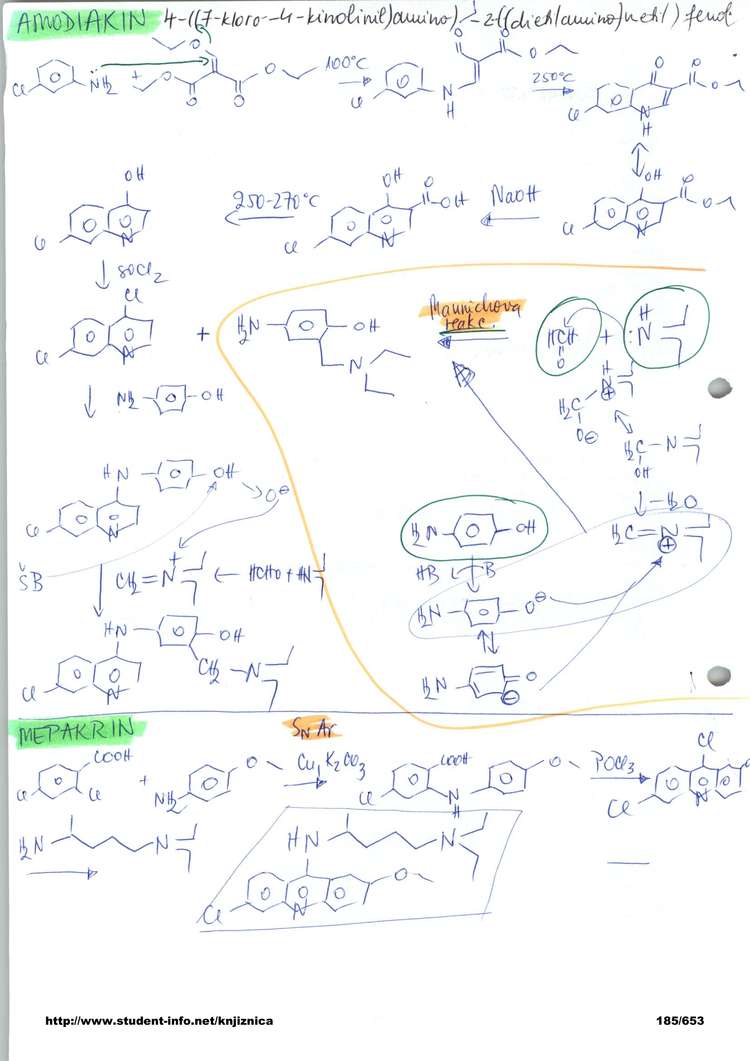 AMODIAKIN 4-((7-kloro-4-kinolinil)amino)-2-((dietilamino)metil) fenol
Cl NH2 + O O O O O 100°C Cl N H O O O 250°C Cl N H O O O
OH 250-270°C OH O OH NaOH OH O O
Cl N Cl N Cl N
SOCl2
Cl
Cl N + H2N OH N
Mannichova
reakc.
HCH O + H :N
NH2 OH
H2C H N ⊕ O⊖
H2C - N OH
HN OH O⊖
Cl N
-H2O
H2C=N ⊕
H2N OH
ŠB CH2=N + ← HCHO + HN
HB B
H2N O⊖
HN OH CH2 - N
Cl N
H2N O ⊖
MEPAKRIN SN Ar
COOH Cl Cl + NH2 O Cu, K2CO3 COOH Cl N H O POCl3 Cl Cl N
H2N N
HN N
Cl N O
http://www.student-info.net/knjiznica 185/653